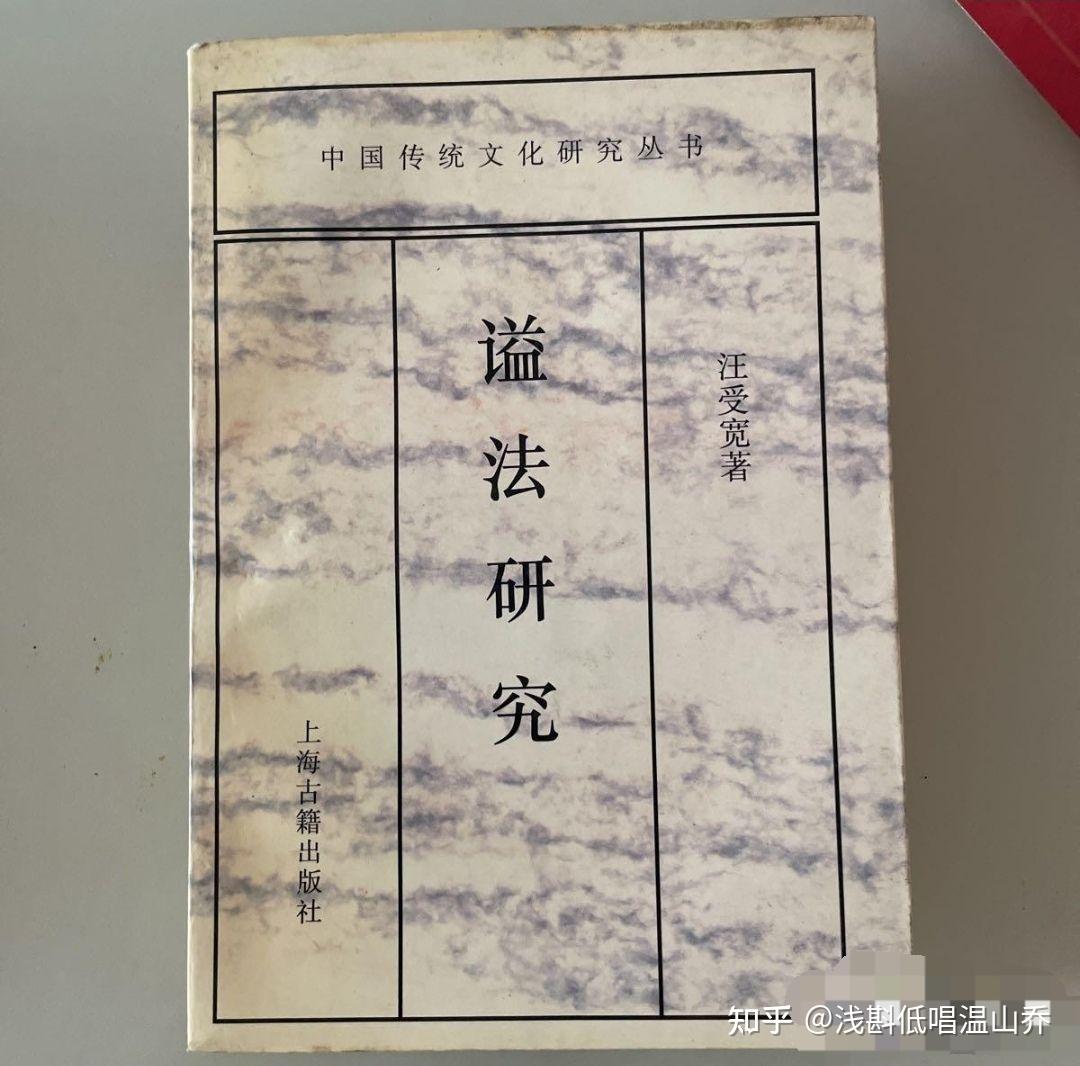 中国传统文化研究丛书
汪受宽著
谥法研究
上海古籍出版社
知乎 @浅斟低唱温山乔